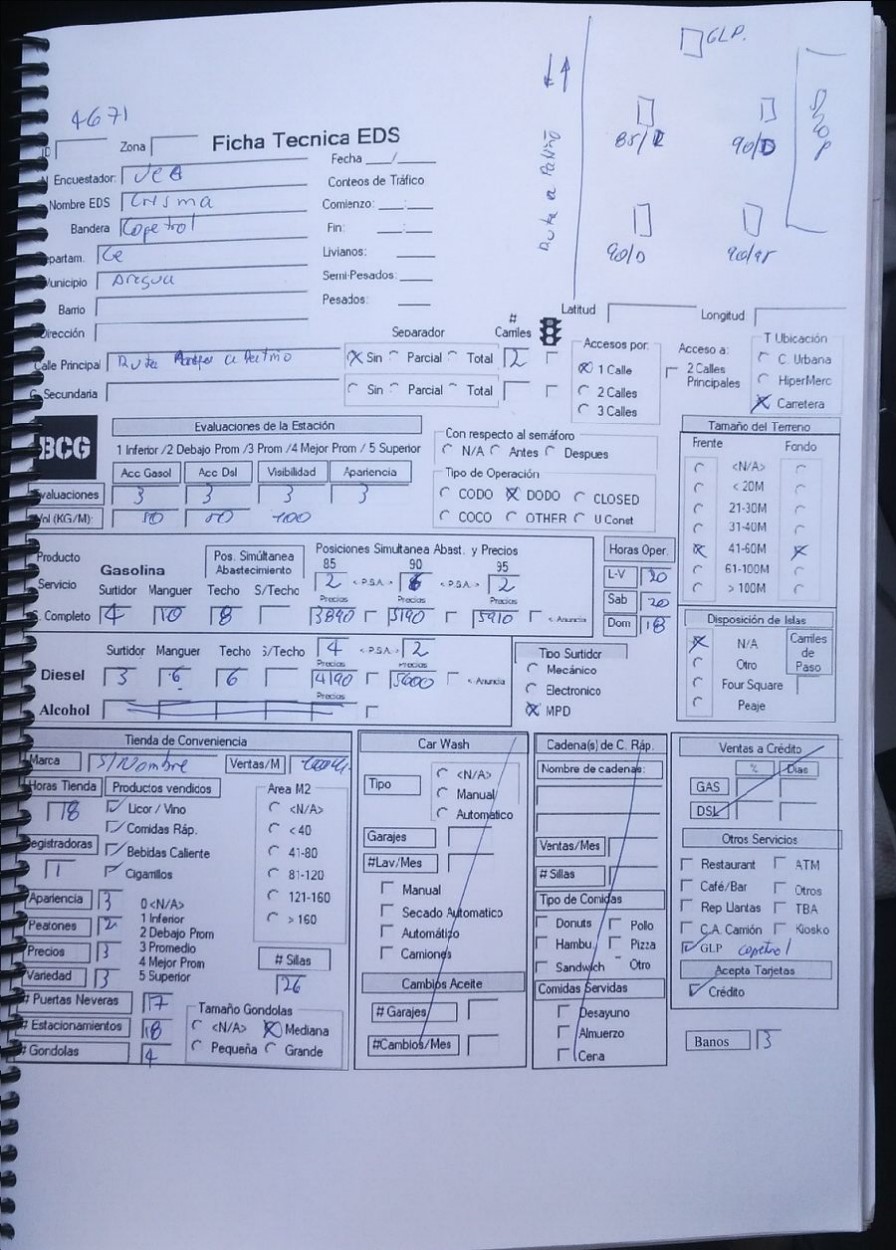 GLP.
Shop
85/D
90/D
90/D
90/95
Ruta a Patiño
4671
Zona
Ficha Tecnica EDS
Fecha ___/____
Encuestador:
Conteos de Tráfico
Nombre EDS Crisma
Comienzo: ___:___
Bandera Copetrol
Fin: ___:___
epartam. Ce
Livianos: ____
unicipio Aregua
Semi-Pesados: ____
Barrio
Pesados: ____
Dirección
Latitud
Longitud
Separador
# Carriles
Accesos por:
Acceso a:
T Ubicación
Calle Principal Ruta a Patiño
X Sin Parcial Total 2
X 1 Calle
2 Calles Principales
C. Urbana
Secundaria
Sin Parcial Total
2 Calles
HiperMerc
3 Calles
X Carretera
BCG
Evaluaciones de la Estación
1 Inferior /2 Debajo Prom /3 Prom /4 Mejor Prom / 5 Superior
Acc Gasol Acc Dsl Visibilidad Apariencia
Evaluaciones 3 3 3 3
Vol (KG/M): 50 50 100
Con respecto al semáforo
N/A Antes Despues
Tipo de Operación
CODO X DODO CLOSED
COCO OTHER U Const
Tamaño del Terreno
Frente Fondo
<N/A>
< 20M
21-30M
31-40M
X 41-60M X
61-100M
> 100M
Producto
Servicio
Gasolina
Pos. Simúltanea Abastecimiento
Posiciones Simultanea Abast. y Precios
85 90 95
2 < P.S.A > 6 < P.S.A > 2
Surtidor Manguer Techo S/Techo
Precios Precios Precios
S. Completo 4 10 8 3890 5190 5910 <- Anuncia
Horas Oper.
L-V 20
Sab 20
Dom 18
Surtidor Manguer Techo S/Techo 4 < P.S.A > 2
Precios Precios
Diesel 3 6 6 4190 5600 <- Anuncia
Precios
Alcohol
Tipo Surtidor
Mecánico
Electronico
X MPD
Disposición de Islas
X N/A
Carriles de Paso
Otro
Four Square
Peaje
Tienda de Conveniencia
Marca S/Nombre Ventas/M
Horas Tienda Productos vendidos Area M2
18 Licor / Vino <N/A>
Comidas Ráp. < 40
Registradoras Bebidas Caliente 41-80
1 Cigarrillos 81-120
Apariencia 3 0 <N/A> 121-160
Peatones 2 1 Inferior > 160
2 Debajo Prom
Precios 3 3 Promedio
4 Mejor Prom # Sillas
Variedad 3 5 Superior 26
# Puertas Neveras 17
Tamaño Gondolas
# Estacionamientos 18 <N/A> X Mediana
# Gondolas 4 Pequeña Grande
Car Wash
Tipo
<N/A>
Manual
Automatico
Garajes
#Lav/Mes
Manual
Secado Automatico
Automático
Camiones
Cambios Aceite
# Garajes
#Cambios/Mes
Cadena(s) de C. Ráp.
Nombre de cadenas:
Ventas/Mes
# Sillas
Tipo de Comidas
Donuts Pollo
Hambu. Pizza
Sandwich Otro
Comidas Servidas
Desayuno
Almuerzo
Cena
Ventas a Crédito
% Dias
GAS
DSL
Otros Servicios
Restaurant ATM
Café/Bar Otros
Rep Llantas TBA
C.A. Camión Kiosko
GLP copetrol
Acepta Tarjetas
Crédito
Banos 3